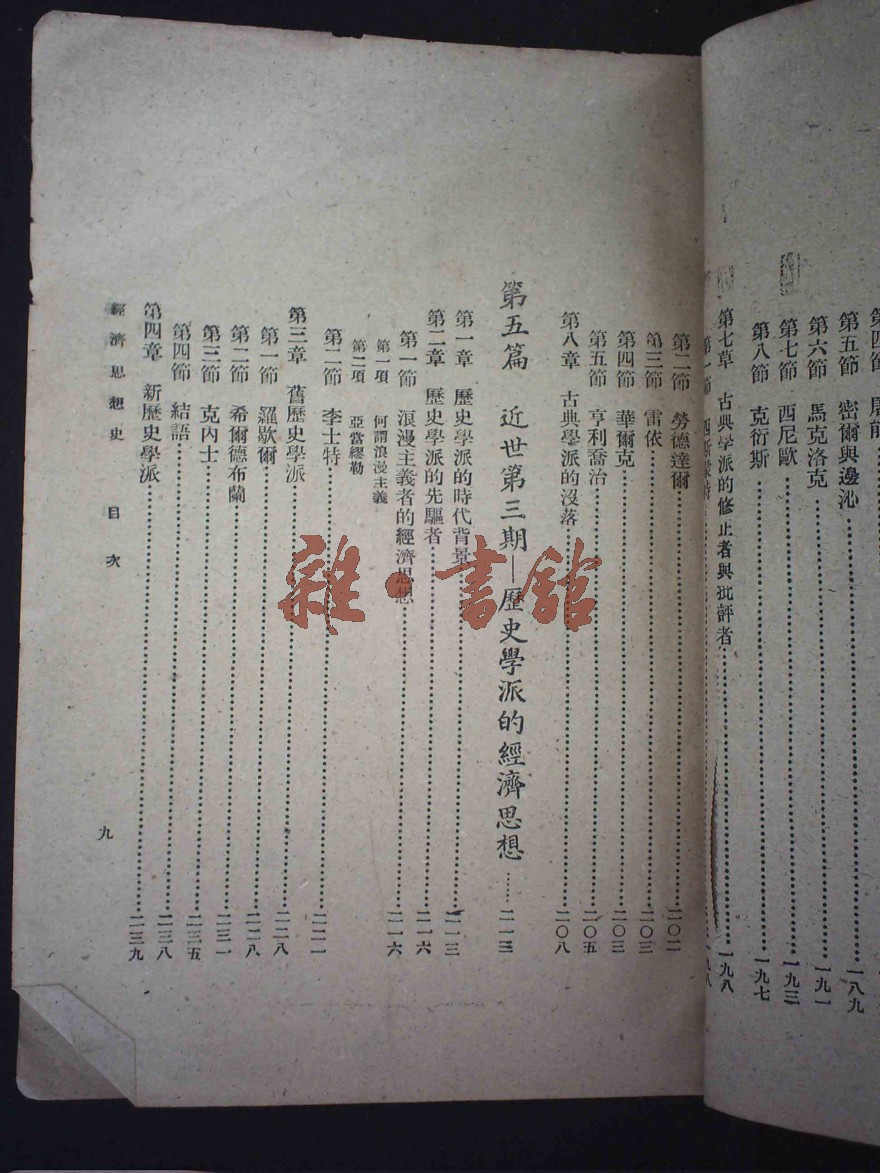 第五節　密爾與邊沁……一八九
第六節　馬克洛克……一九一
第七節　西尼歐……一九三
第八節　克衍斯……一九七
第七章　古典學派的修正者與批評者……一九八
第二節　勞德達爾……二〇二
第三節　雷依……二〇三
第四節　華爾克……二〇三
第五節　亨利喬治……二〇五
第八章　古典學派的沒落……二〇八
第五篇　近世第三期—歷史學派的經濟思想……二一三
第一章　歷史學派的時代背景……二一三
第二章　歷史學派的先驅者……二一六
第一節　浪漫主義者的經濟思想……二一六
第一項　何謂浪漫主義
第二項　亞當繆勒
第二節　李士特……二二一
第三章　舊歷史學派……二二八
第一節　羅歇爾……二二八
第二節　希爾德布蘭……二三一
第三節　克內士……二三五
第四節　結語……二三八
第四章　新歷史學派……二三九
經濟思想史　目次
九
雜·書館